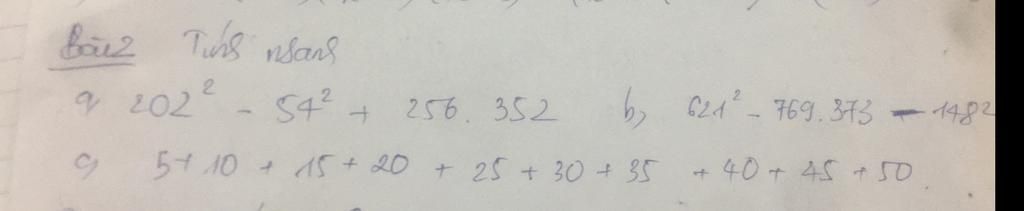 Bài 2 Tính nhanh
a, 202² - 54² + 256.352 b, 621² - 769.373 - 148²
c, 5+10 + 15+20 + 25+30+35 +40+45+50.